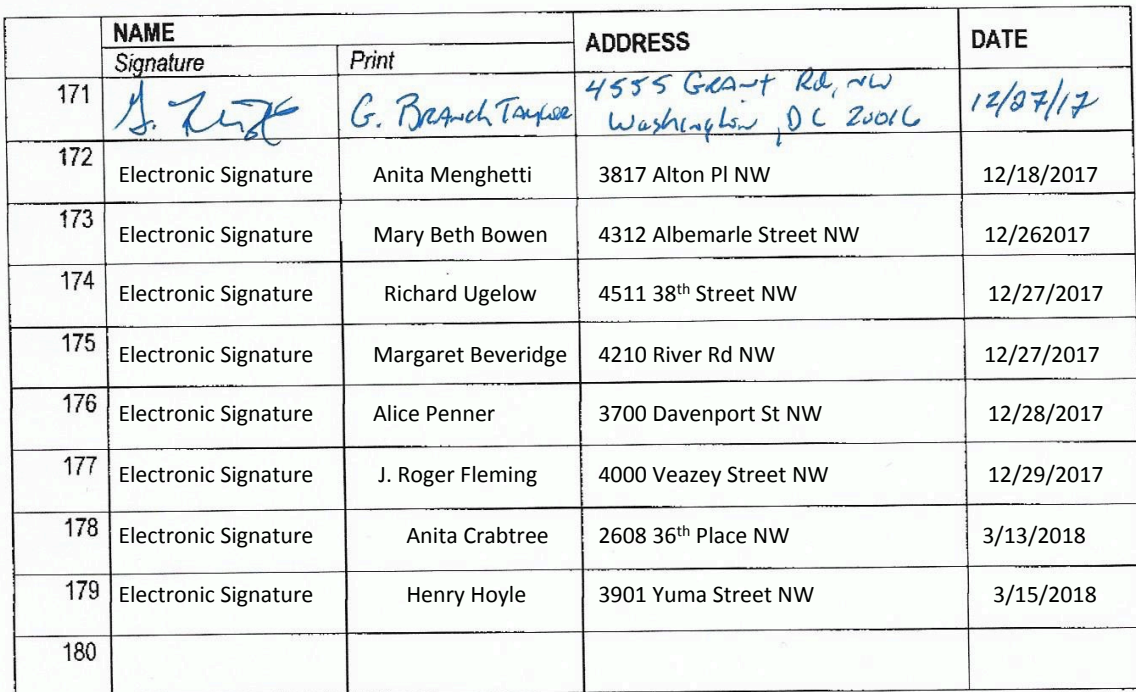 NAME
ADDRESS
DATE
Signature
Print
171
G. Branch Taylor
4555 Grant Rd, NW
Washington, DC 20016
12/27/17
172 Electronic Signature Anita Menghetti 3817 Alton Pl NW 12/18/2017
173 Electronic Signature Mary Beth Bowen 4312 Albemarle Street NW 12/262017
174 Electronic Signature Richard Ugelow 4511 38th Street NW 12/27/2017
175 Electronic Signature Margaret Beveridge 4210 River Rd NW 12/27/2017
176 Electronic Signature Alice Penner 3700 Davenport St NW 12/28/2017
177 Electronic Signature J. Roger Fleming 4000 Veazey Street NW 12/29/2017
178 Electronic Signature Anita Crabtree 2608 36th Place NW 3/13/2018
179 Electronic Signature Henry Hoyle 3901 Yuma Street NW 3/15/2018
180